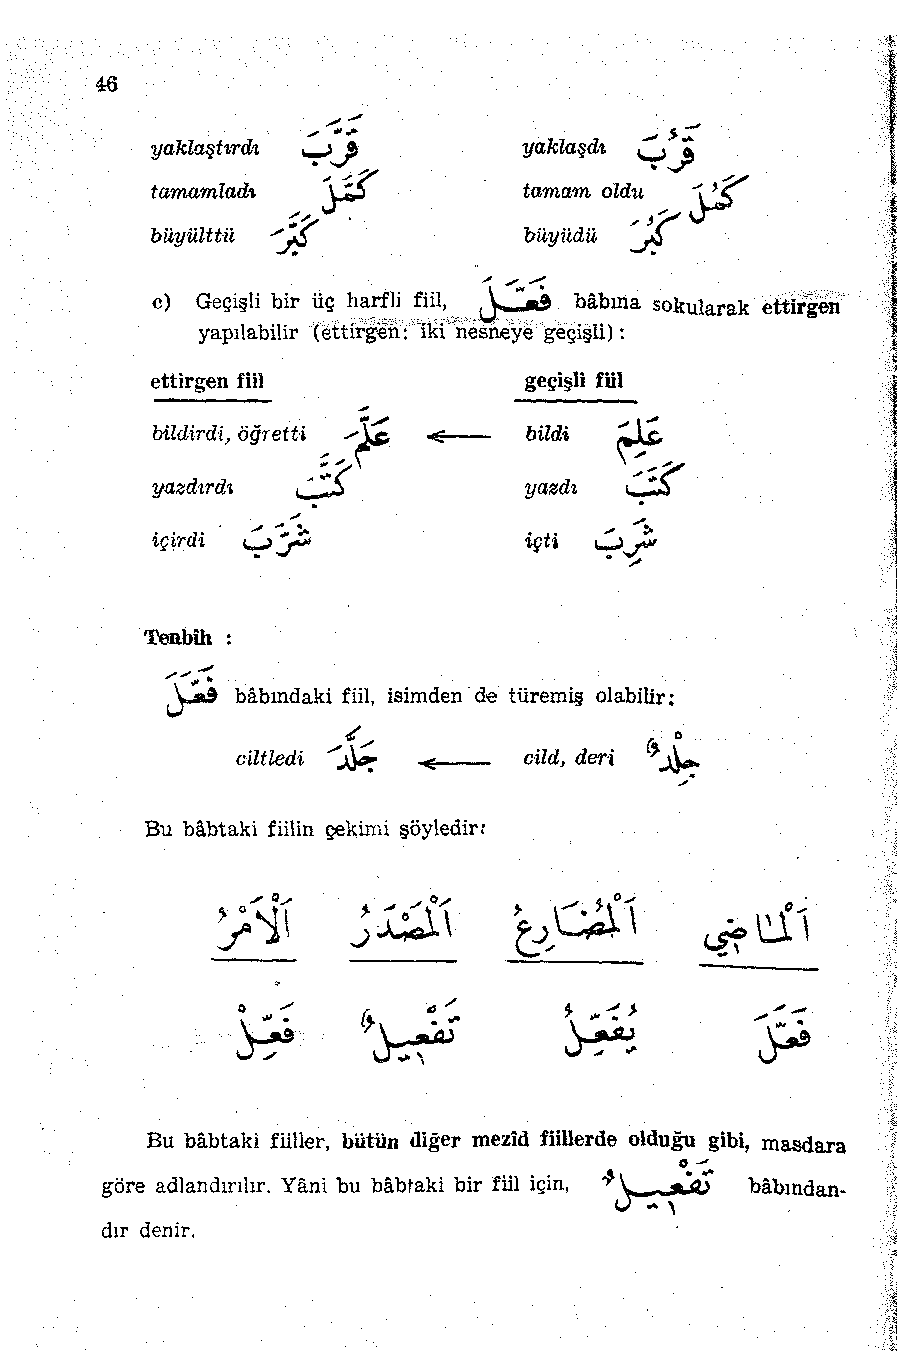 46
yaklaştırdı قَرَّبَ yaklaşdı قَرُبَ
tamamladı كَمَّلَ tamam oldu كَمُلَ
büyülttü كَبَّرَ büyüdü كَبُرَ
c) Geçişli bir üç harfli fiil, فَعَّلَ bâbına sokularak ettirgen
yapılabilir (ettirgen: iki nesneye geçişli) :
ettirgen fiil geçişli fiil
bildirdi, öğretti عَلَّمَ ← bildi عَلِمَ
yazdırdı كَتَّبَ yazdı كَتَبَ
içirdi شَرَّبَ içti شَرِبَ
Tenbih :
فَعَّلَ bâbındaki fiil, isimden de türemiş olabilir:
ciltledi جَلَّدَ ← cild, deri جِلْدٌ
Bu bâbtaki fiilin çekimi şöyledir:
اَلْمَاضِي اَلْمُضَارِعُ اَلْمَصْدَرُ اَلْاَمْرُ
فَعَّلَ يُفَعِّلُ تَفْعِيلٌ فَعِّلْ
Bu bâbtaki fiiller, bütün diğer mezîd fiillerde olduğu gibi, masdara
göre adlandırılır. Yâni bu bâbtaki bir fiil için, تَفْعِيلٌ bâbından-
dır denir.